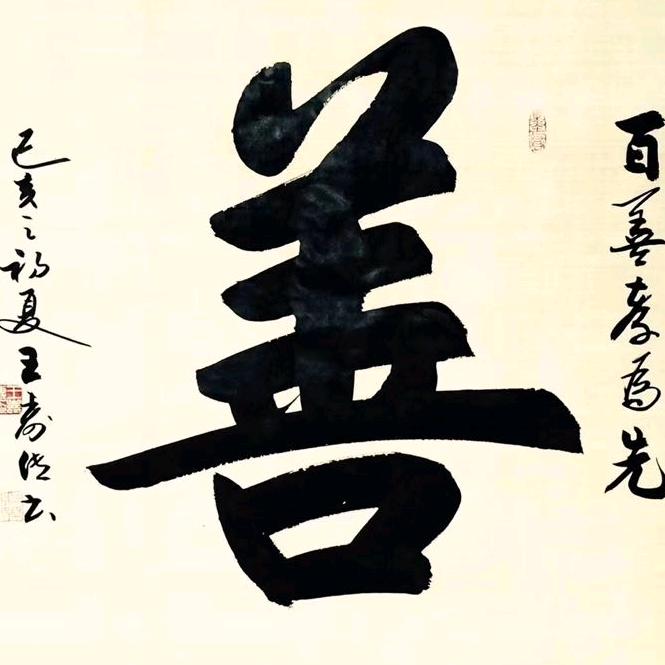 百善孝为先
善
己亥之初夏王寿仁书